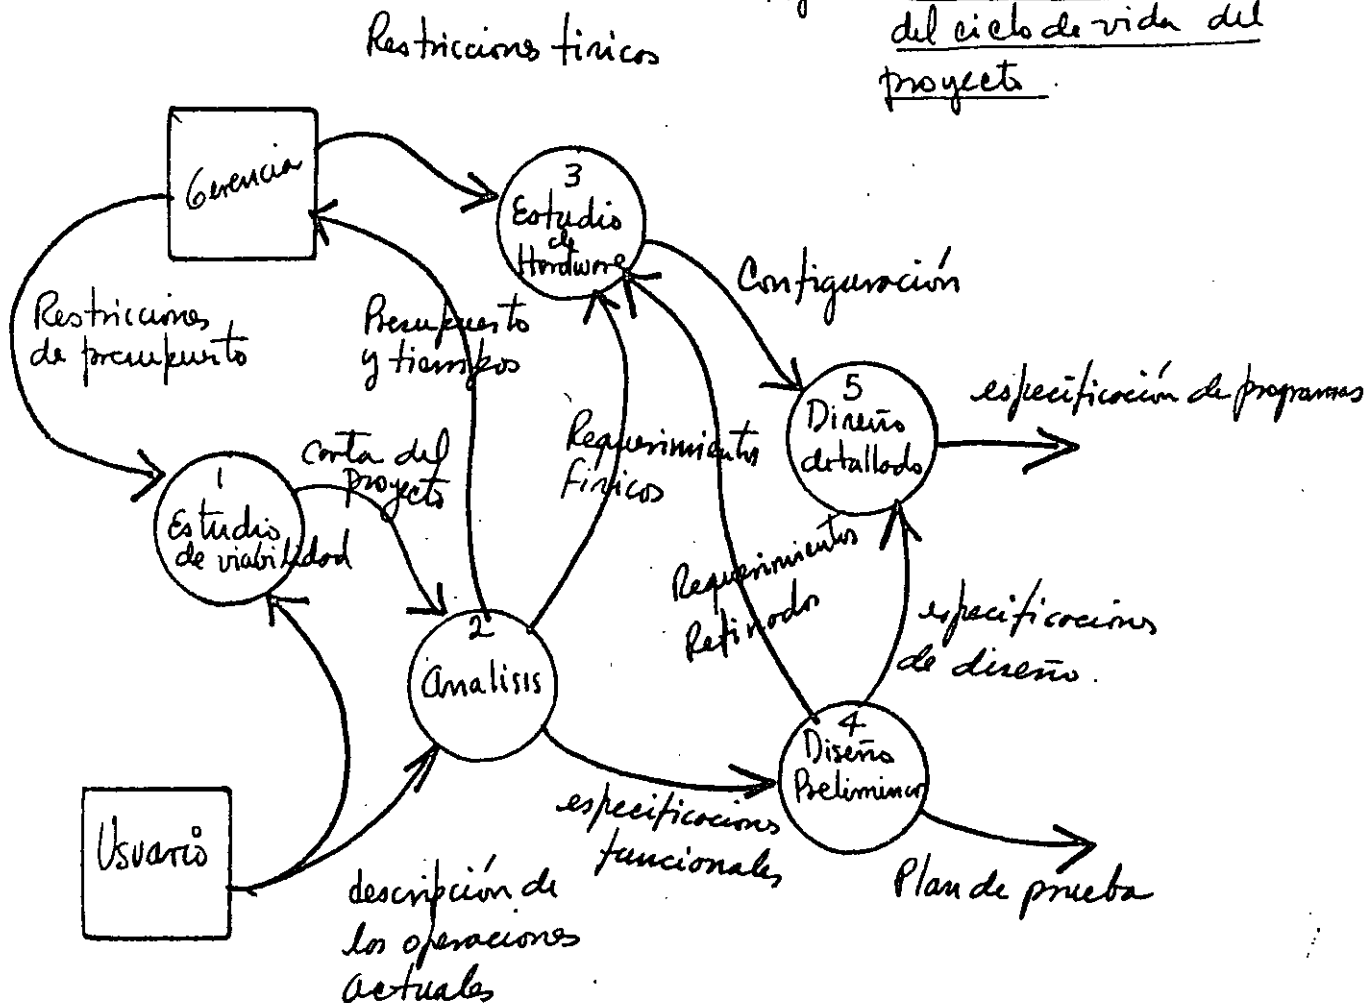 del ciclo de vida del
proyecto.
Restricciones físicos
Gerencia
3
Estudio
de
Hardware
Configuración
Restricciones
de presupuesto
Presupuesto
y tiempos
5
Diseño
detallado
especificación de programas
carta del
proyecto
Requerimientos
Físicos
1
Estudio
de viabilidad
Requerimientos
Refinados
especificaciones
de diseño.
2
Analisis
4
Diseño
Preliminar
Usuario
especificaciones
funcionales
Plan de prueba
descripción de
los operaciones
actuales